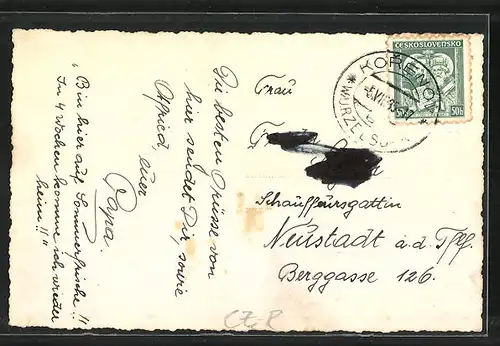 "Bin hier auf Sommerfrische!!
In 4 Wochen komme ich wieder
heim!!"
Die besten Grüsse von
hier sendet Dir, sowie
Alfried, euer
Papa.
Frau
Schauffeursgattin
Neustadt a.d. Tfl.
Berggasse 126.
ČESKOSLOVENSKO
50h
KOŘENOV
WURZELSD
CZ-R